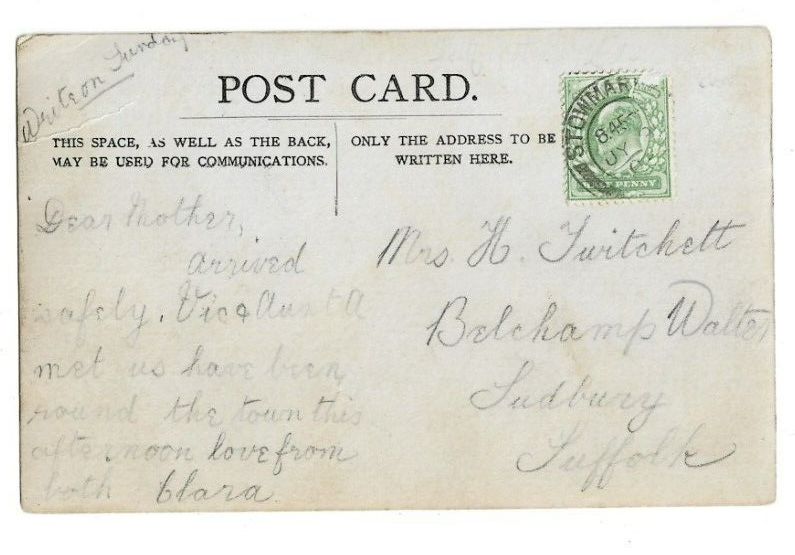 Write on Sunday
POST CARD.
THIS SPACE, AS WELL AS THE BACK,
MAY BE USED FOR COMMUNICATIONS.
ONLY THE ADDRESS TO BE
WRITTEN HERE.
STOWMAR
845P
JY
PENNY
Dear Mother,
arrived
safely. Vic & Aunt A
met us have been
round the town this
afternoon love from
both Clara.
Mrs. H. Twitchett
Belchamp Walter
Sudbury
Suffolk